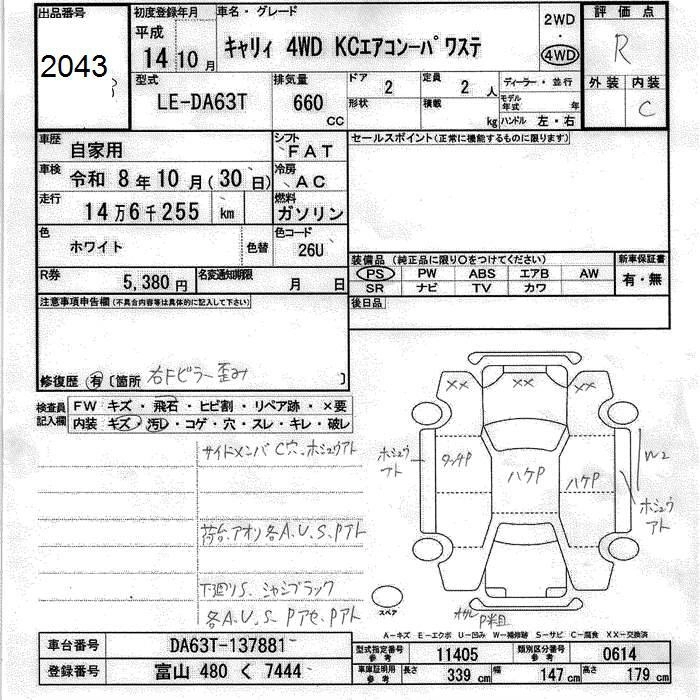 出品番号
2043
初度登録年月
平成
14 10 月
車名・グレード
キャリィ 4WD KCエアコン-パワステ
2WD
・
4WD
評価点
R
外装 内装
C
型式
LE-DA63T
排気量
660 CC
ドア 2
形状
定員 2 人
積載 kg
ディーラー・並行
モデル年式 年
ハンドル 左・右
車歴
自家用
シフト
FAT
セールスポイント(正常に機能するものに限ります)
車検
令和 8年10月(30日)
冷房
AC
走行
14万6千255 km
燃料
ガソリン
色
ホワイト
色替
色コード
26U
装備品(純正品に限り○をつけてください)
PS PW ABS エアB AW
SR ナビ TV カワ
新車保証書
有・無
R券
5,380円
名変通知期限
月 日
後日品
注意事項申告欄(不具合内容等は具体的に記入して下さい)
修復歴 有〔箇所 右Fピラー歪み 〕
検査員記入欄
FW キズ・飛石・ヒビ割・リペア跡・×要
内装 キズ・汚レ・コゲ・穴・スレ・キレ・破レ
サイドメンバC穴、ホシュウアト
荷台、アオリ各A、U、S、Pアト
下廻りS、シャシブラック
各A、U、S、Pアセ、Pアト
×× ×× ××
ホシュウアト
タッチP
ハケP
ハケP
W2
ホシュウアト
スペア
A-キズ E-エクボ U-凹み W-補修跡 S-サビ C-腐食 XX-交換済
車台番号
DA63T-137881
登録番号
富山 480 く 7444
型式指定番号 参考
11405
類別区分番号 参考
0614
車庫証明用 参考
長さ 339 cm 幅 147 cm 高さ 179 cm